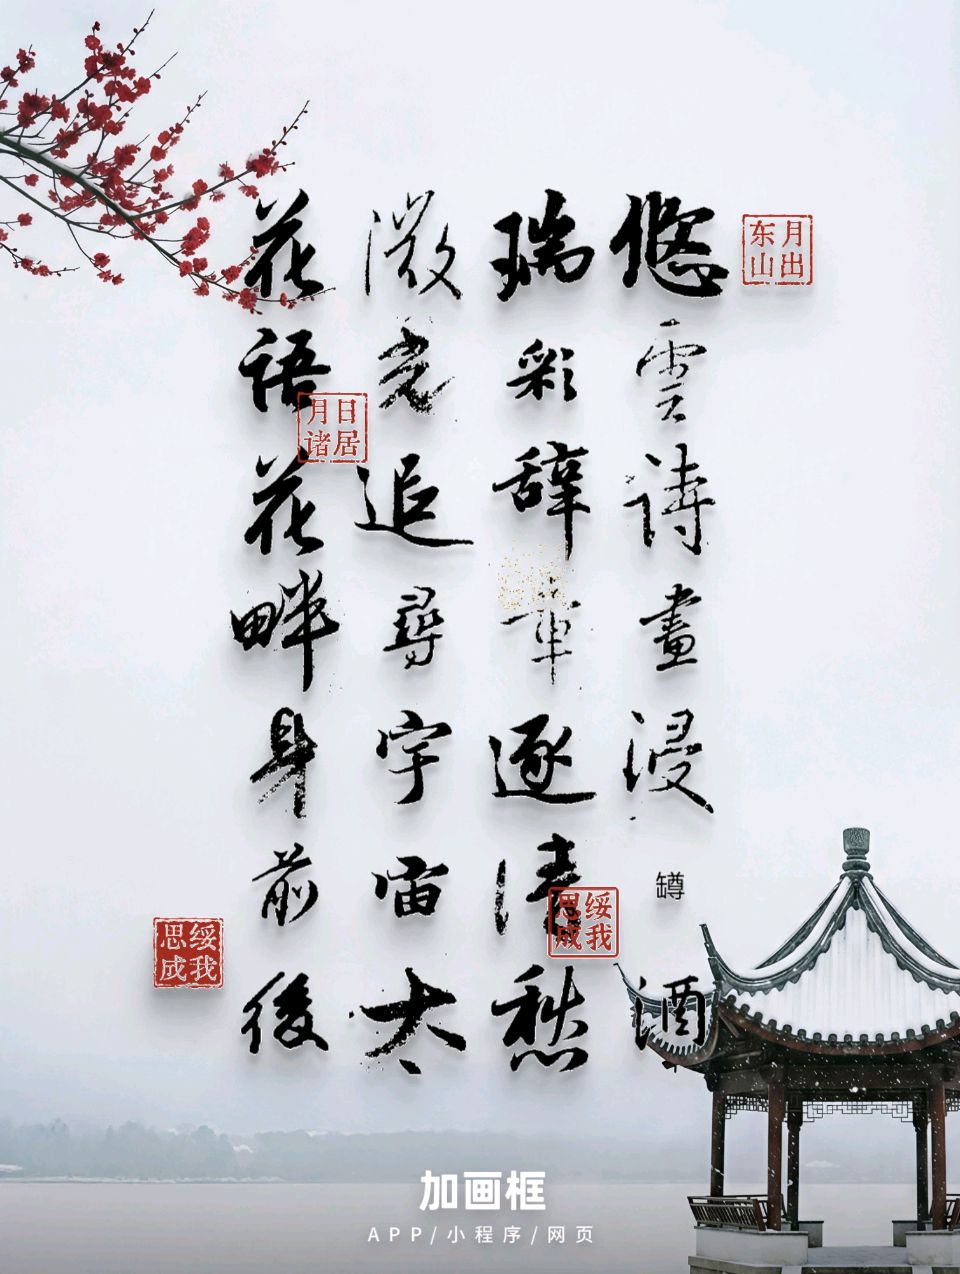 悠雲詩畫浸罇酒
瑞彩辞章逐清愁
微光追尋宇宙太
花語花畔身前後
月出
东山
日居
月诸
绥我
思成
绥我
思成
加画框
APP/小程序/网页